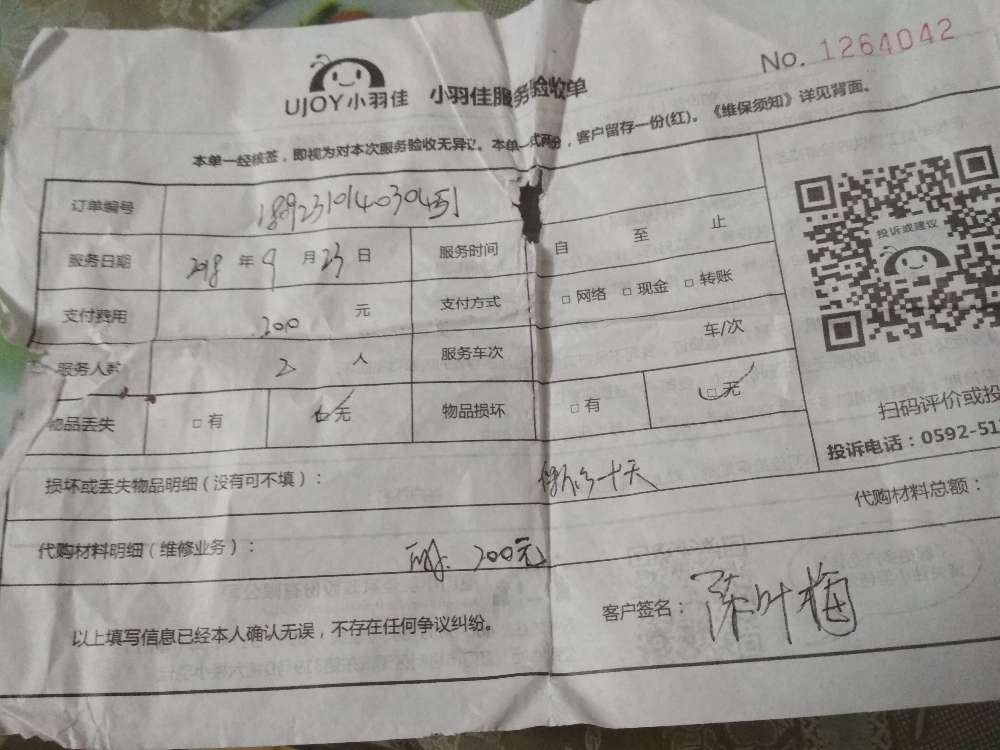 No. 1264042
UJOY小羽佳 小羽佳服务验收单
本单一经核签，即视为对本次服务验收无异议。本单一式两分，客户留存一份(红)。《维保须知》详见背面。
订单编号
服务日期 2018 年 9 月 23 日 服务时间 自 至 止
投诉或建议
支付费用 200 元 支付方式 □ 网络 □ 现金 □ 转账
服务人数 2 人 服务车次 车/次
物品丢失 □ 有 □ 无 物品损坏 □ 有 □ 无
扫码评价或投
投诉电话：0592-51
损坏或丢失物品明细（没有可不填）： 十天
代购材料总额：
代购材料明细（维修业务）： 200元
以上填写信息已经本人确认无误，不存在任何争议纠纷。
客户签名： 陈叶梅